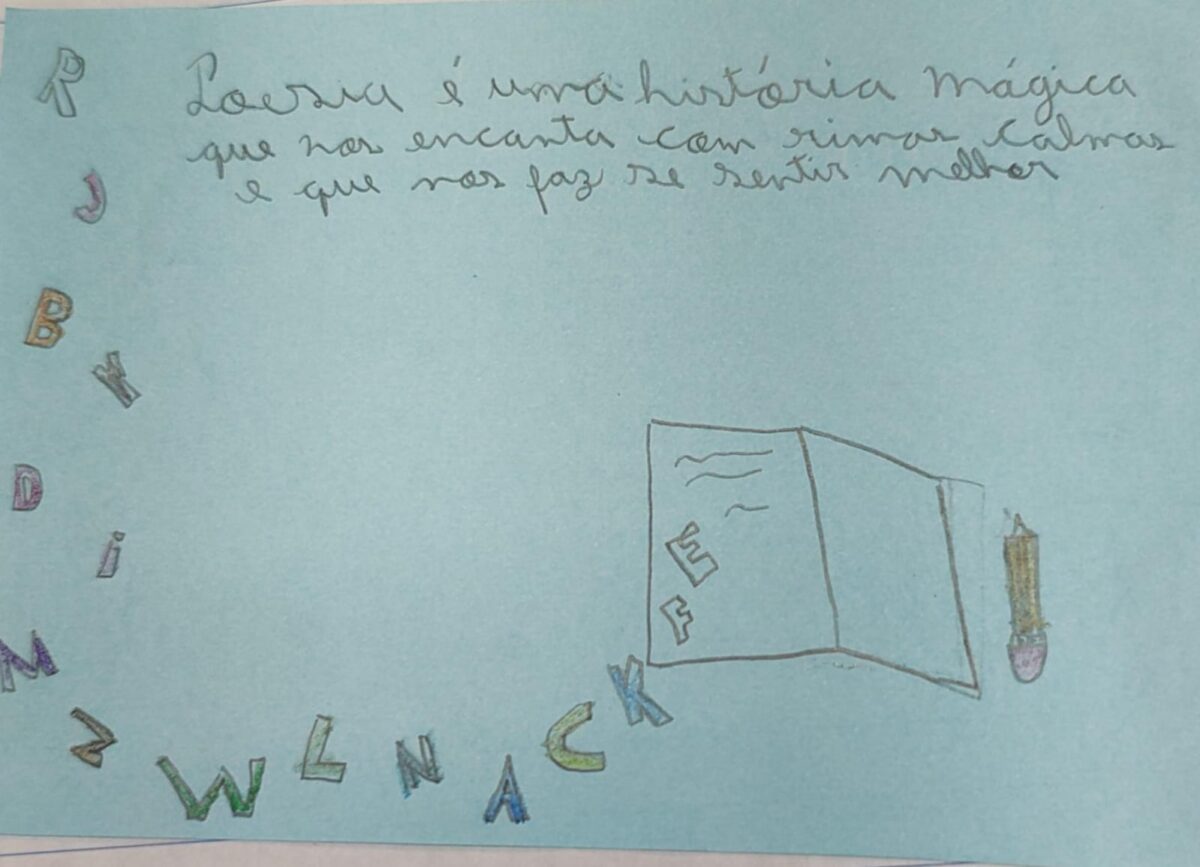 Poesia é uma história mágica
que nos encanta com rimas calmas
e que nos faz se sentir melhor
P
J
B
Y
D
i
M
Z
W
L
N
A
C
K
E
F